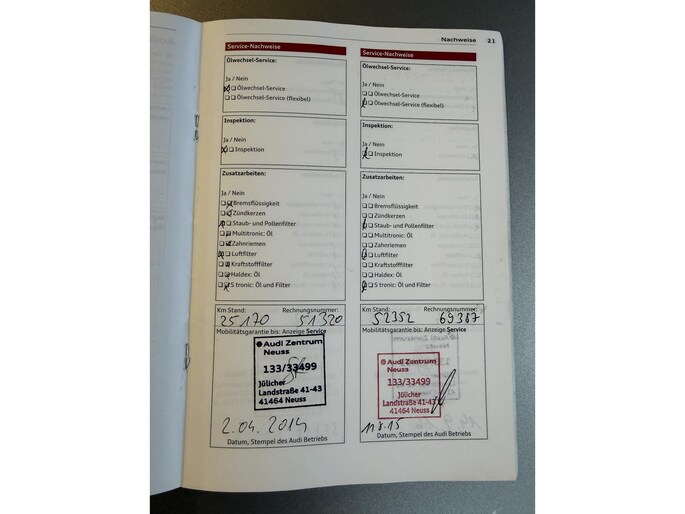 Nachweise 21
Service-Nachweise
Ölwechsel-Service:
Ja / Nein
Ölwechsel-Service
Ölwechsel-Service (flexibel)
Inspektion:
Ja / Nein
Inspektion
Zusatzarbeiten:
Ja / Nein
Bremsflüssigkeit
Zündkerzen
Staub- und Pollenfilter
Multitronic: Öl
Zahnriemen
Luftfilter
Kraftstofffilter
Haldex: Öl
S tronic: Öl und Filter
Km Stand: Rechnungsnummer:
25170 51320
Mobilitätsgarantie bis: Anzeige Service
Audi Zentrum
Neuss
133/33499
Jülicher
Landstraße 41-43
41464 Neuss
2.04.2014
Datum, Stempel des Audi Betriebs
Service-Nachweise
Ölwechsel-Service:
Ja / Nein
Ölwechsel-Service
Ölwechsel-Service (flexibel)
Inspektion:
Ja / Nein
Inspektion
Zusatzarbeiten:
Ja / Nein
Bremsflüssigkeit
Zündkerzen
Staub- und Pollenfilter
Multitronic: Öl
Zahnriemen
Luftfilter
Kraftstofffilter
Haldex: Öl
S tronic: Öl und Filter
Km Stand: Rechnungsnummer:
52352 69387
Mobilitätsgarantie bis: Anzeige Service
Audi Zentrum
Neuss
133/33499
Jülicher
Landstraße 41-43
41464 Neuss
11.8.15
Datum, Stempel des Audi Betriebs